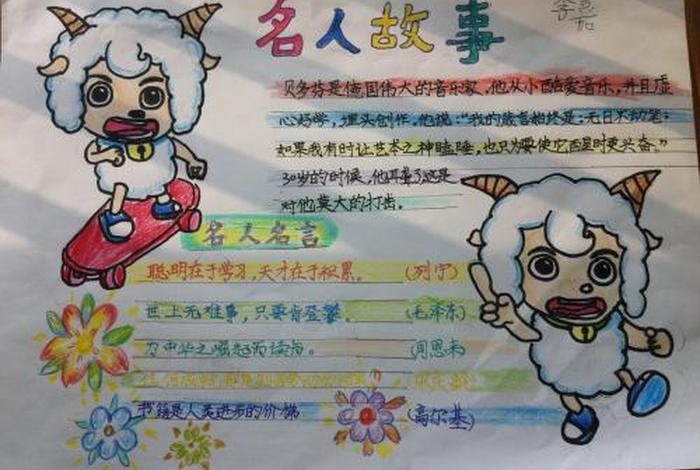 名人故事
贝多芬是德国伟大的音乐家,他从小酷爱音乐,并且虚
心好学,埋头创作。他说:"我的箴言始终是:无日不动笔;
如果我有时让艺术之神瞌睡,也只为要使它醒时更兴奋。"
30岁的时候,他耳聋了这是
对他莫大的打击。
名人名言
聪明在于学习,天才在于积累。 (列宁)
世上无难事,只要肯登攀。 (毛泽东)
为中华之崛起而读书。 (周恩来)
书籍是人类进步的阶梯 (高尔基)